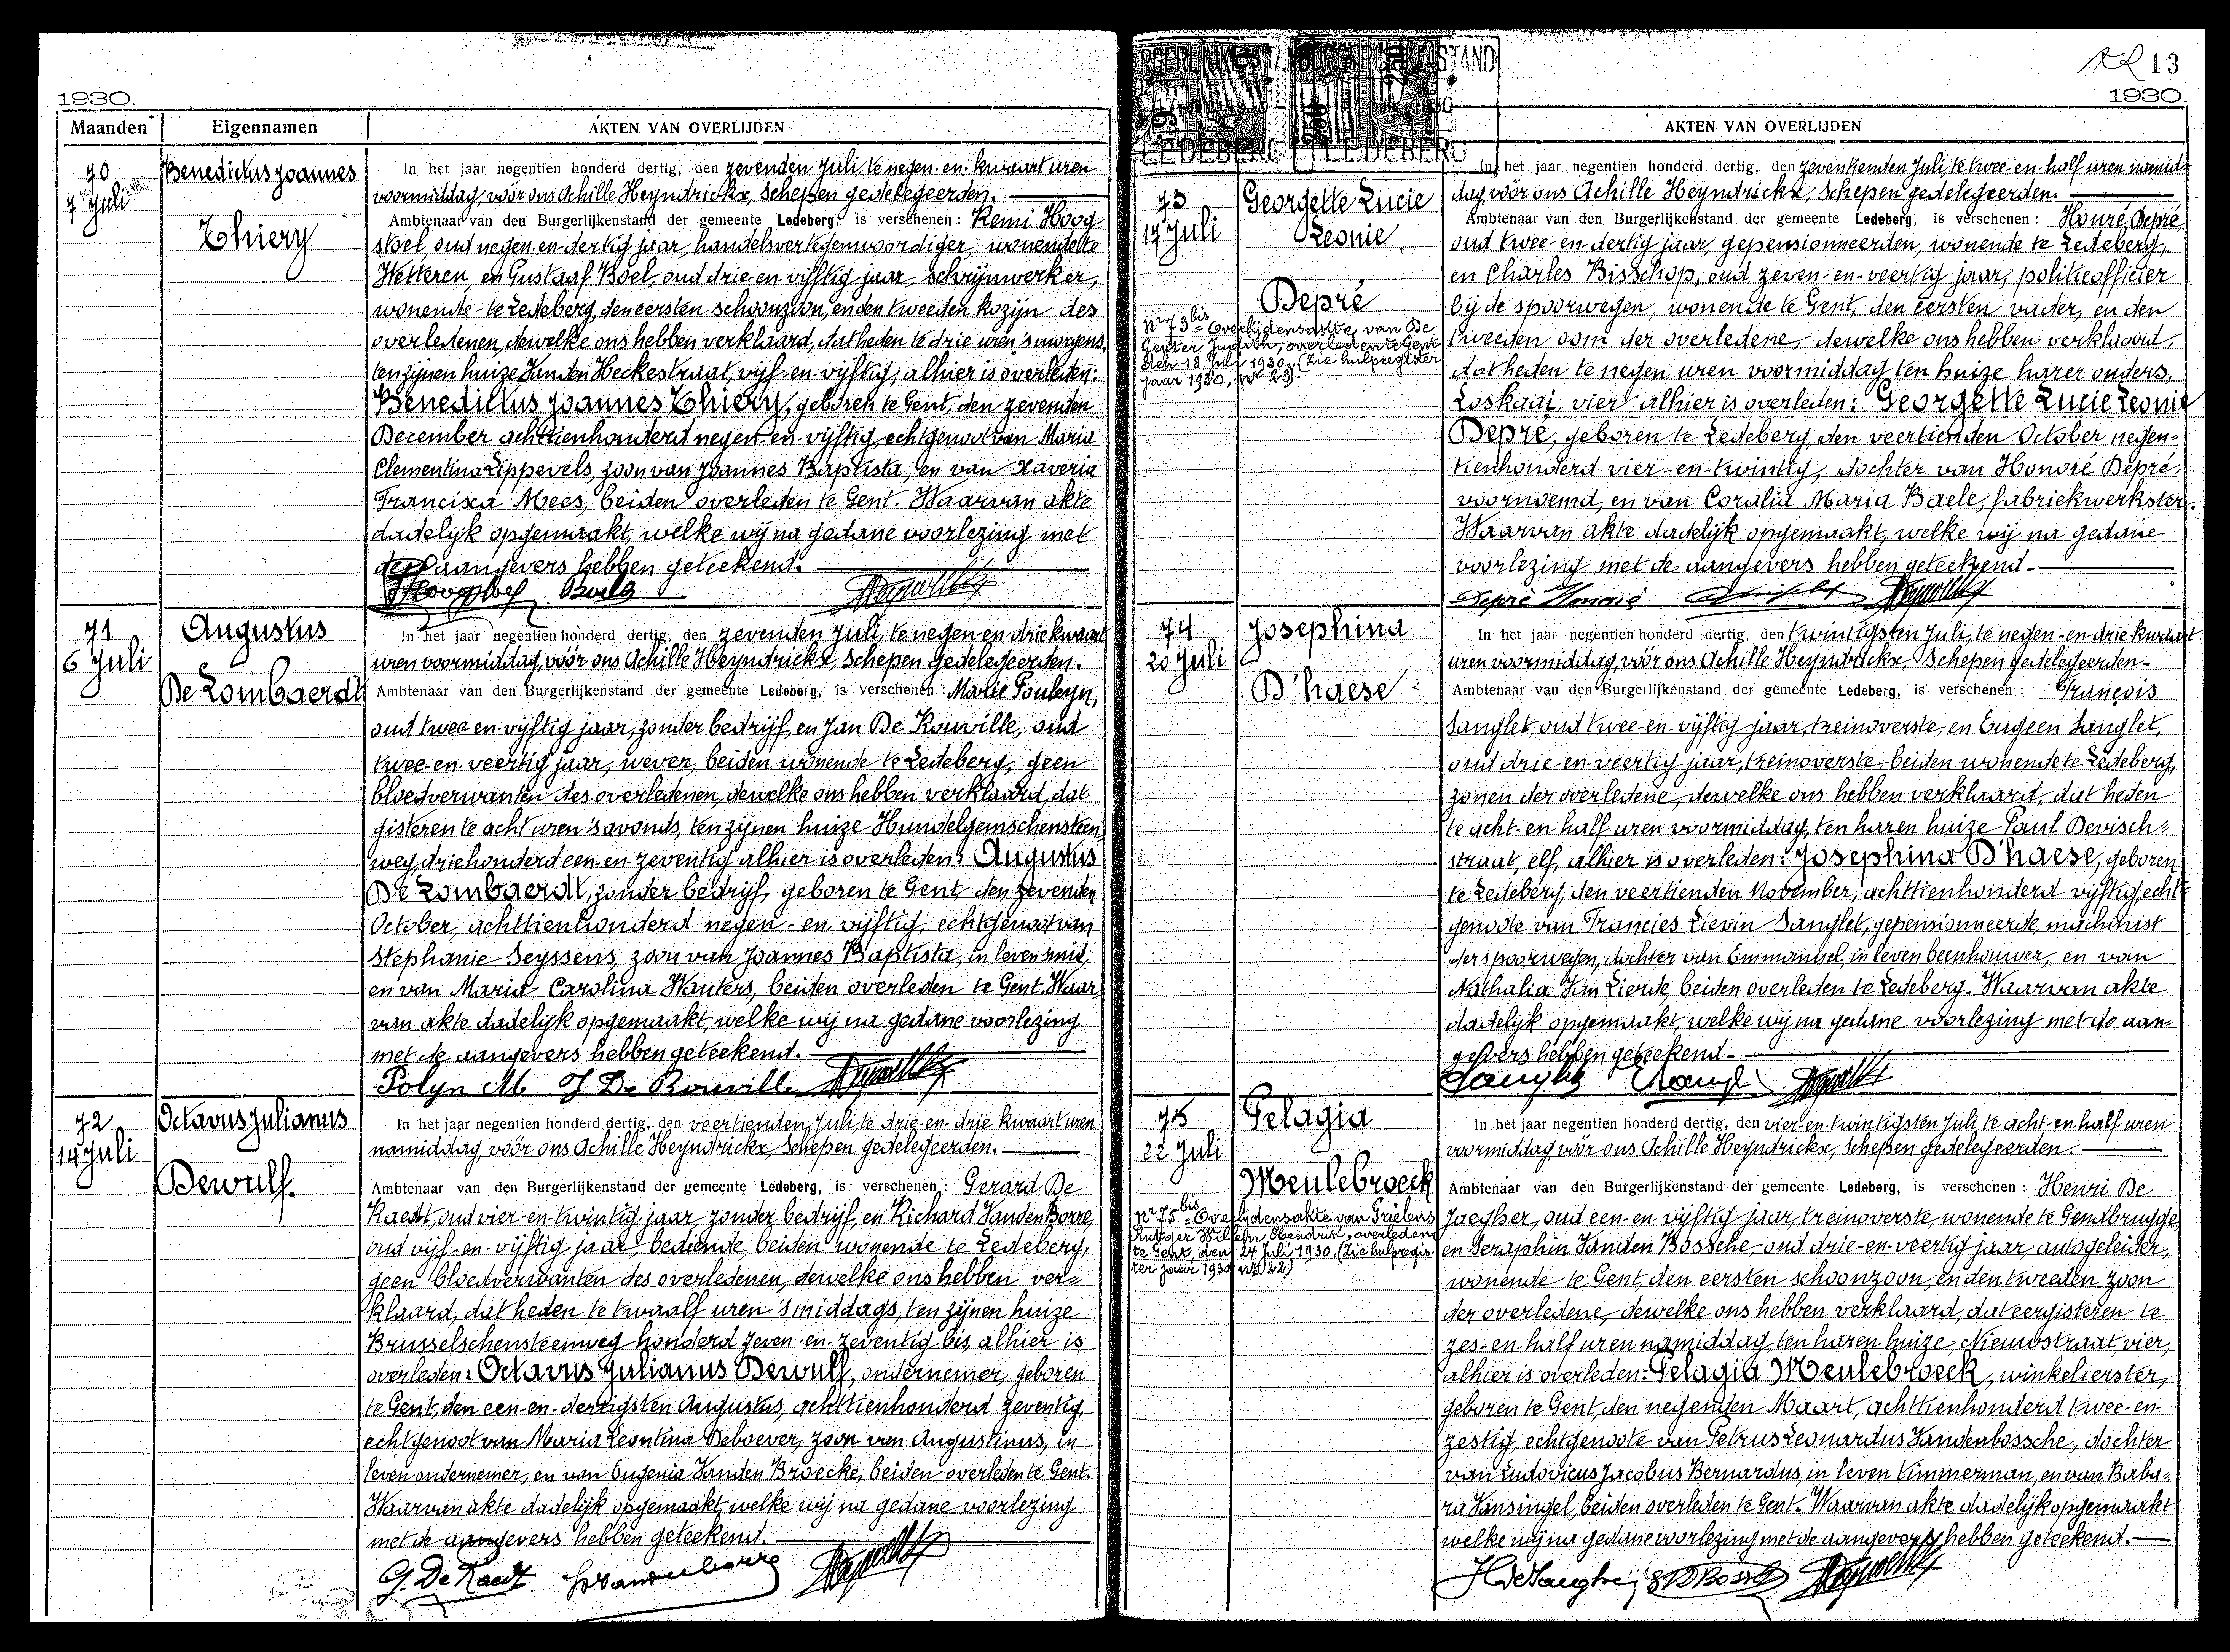 1930.
Maanden Eigennamen AKTEN VAN OVERLIJDEN
70
7 Juli
Benedictus Joannes
Thiery
In het jaar negentien honderd dertig, den zevenden Juli, te negen-en-kwaart uren
voormiddag, vóór ons Achille Heyndrickx, Schepen gedelegeerden.
Ambtenaar van den Burgerlijkenstand der gemeente Ledeberg, is verschenen: Remi Hoog-
stoel, oud negen-en-dertig jaar, handelsvertegenwoordiger, wonende te
Wetteren, en Gustaaf Boel, oud drie-en-vijftig jaar, schrijnwerker,
wonende te Ledeberg, den eersten schoonzoon, en den tweeden kozijn des
overledenen, dewelke ons hebben verklaard, dat heden te drie uren 's morgens,
ten zijnen huize Vanden Heckestraat, vijf-en-vijftig, alhier is overleden:
Benedictus Joannes Thiery, geboren te Gent, den zevenden
December achttienhonderd negen-en-vijftig, echtgenoot van Maria
Clementina Lippevels, zoon van Joannes Baptista, en van Xaveria
Francisca Mees, beiden overleden te Gent. Waarvan akte
dadelijk opgemaakt, welke wij na gedane voorlezing met
de aangevers hebben geteekend.
71
6 Juli
Augustus
De Lombaerdt
In het jaar negentien honderd dertig, den zevenden Juli, te negen-en-drie kwaart
uren voormiddag, vóór ons Achille Heyndrickx, Schepen gedelegeerden.
Ambtenaar van den Burgerlijkenstand der gemeente Ledeberg, is verschenen: Marie Pouleyn,
oud twee-en-vijftig jaar, zonder bedrijf, en Jan De Rouville, oud
twee-en-veertig jaar, wever, beiden wonende te Ledeberg, geen
bloedverwanten des overledenen, dewelke ons hebben verklaard, dat
gisteren te acht uren 's avonds, ten zijnen huize Hundelgemschensteen-
weg, driehonderd een-en-zeventig alhier is overleden: Augustus
De Lombaerdt, zonder bedrijf, geboren te Gent, den zevenden
October, achttienhonderd negen-en-vijftig, echtgenoot van
Stephanie Seyssens, zoon van Joannes Baptista, in leven smid,
en van Maria Carolina Wauters, beiden overleden te Gent. Waar-
van akte dadelijk opgemaakt, welke wij na gedane voorlezing
met de aangevers hebben geteekend.
Polyn M J De Rouville
72
14 Juli
Octavus Julianus
Dewulf.
In het jaar negentien honderd dertig, den veertienden Juli, te drie-en-drie kwaart uren
namiddag, vóór ons Achille Heyndrickx, Schepen gedelegeerden.
Ambtenaar van den Burgerlijkenstand der gemeente Ledeberg, is verschenen: Gerard De
Raedt, oud vier-en-twintig jaar, zonder bedrijf, en Richard Vanden Borre,
oud vijf-en-vijftig jaar, bediende, beiden wonende te Ledeberg,
geen bloedverwanten des overledenen, dewelke ons hebben ver-
klaard, dat heden te twaalf uren 's middags, ten zijnen huize
Brusselschensteenweg honderd zeven-en-zeventig bis, alhier is
overleden: Octavus Julianus Dewulf, ondernemer, geboren
te Gent, den een-en-dertigsten Augustus, achttienhonderd zeventig,
echtgenoot van Maria Leontina Deboever, zoon van Augustinus, in
leven ondernemer, en van Eugenia Vanden Broecke, beiden overleden te Gent.
Waarvan akte dadelijk opgemaakt, welke wij na gedane voorlezing
met de aangevers hebben geteekend.
G. De Raedt Vandenborre
13
1930.
BURGERLIJKE STAND
LEDEBERG LEDEBERG
AKTEN VAN OVERLIJDEN
73
17 Juli
Georgette Lucie
Leonie
Depré
Nr 73bis = Overlijdensakte van De
Genter Judith, overleden te Gent
den 18 Juli 1930. (Zie hulpregister
jaar 1930, Nr 23).
In het jaar negentien honderd dertig, den zeventienden Juli, te twee-en-half uren namid-
dag, vóór ons Achille Heyndrickx, Schepen gedelegeerden.
Ambtenaar van den Burgerlijkenstand der gemeente Ledeberg, is verschenen: Honré Depré
oud twee-en-dertig jaar, gepensionneerden, wonende te Ledeberg,
en Charles Bisschop, oud zeven-en-veertig jaar, politieofficier
bij de spoorwegen, wonende te Gent, den eersten vader, en den
tweeden oom der overledene, dewelke ons hebben verklaard,
dat heden te negen uren voormiddag ten huize harer ouders,
Loskaai, vier alhier is overleden: Georgette Lucie Leonie
Depré, geboren te Ledeberg, den veertienden October negen-
tienhonderd vier-en-twintig, dochter van Honoré Depré
voornoemd, en van Coralia Maria Baele, fabriekwerkster.
Waarvan akte dadelijk opgemaakt, welke wij na gedane
voorlezing met de aangevers hebben geteekend.
Depré Honoré
74
20 Juli
Josephina
D'haese
In het jaar negentien honderd dertig, den twintigsten Juli, te negen-en-drie kwaart
uren voormiddag, vóór ons Achille Heyndrickx, Schepen gedelegeerden.
Ambtenaar van den Burgerlijkenstand der gemeente Ledeberg, is verschenen: François
Sanglet, oud twee-en-vijftig jaar, treinoverste, en Eugeen Sanglet,
oud drie-en-veertig jaar, treinoverste, beiden wonende te Ledeberg,
zonen der overledene, dewelke ons hebben verklaard, dat heden
te acht-en-half uren voormiddag, ten haren huize Paul Devisch-
straat, elf, alhier is overleden: Josephina D'haese, geboren
te Ledeberg, den veertienden November, achttienhonderd vijftig, echt-
genoote van Francies Lievin Sanglet, gepensionneerde machinist
der spoorwegen, dochter van Emmanuel, in leven beenhouwer, en van
Nathalia Van Lierde, beiden overleden te Ledeberg. Waarvan akte
dadelijk opgemaakt, welke wij na gedane voorlezing met de aan-
gevers hebben geteekend.
75
22 Juli
Pelagia
Meulebroeck
Nr 75bis = Overlijdensakte van Frielens
Rutger Willem Hendrik, overleden
te Gent, den 24 Juli 1930. (Zie hulpregis-
ter jaar 1930 Nr 22)
In het jaar negentien honderd dertig, den vier-en-twintigsten Juli, te acht-en-half uren
voormiddag, vóór ons Achille Heyndrickx, Schepen gedelegeerden.
Ambtenaar van den Burgerlijkenstand der gemeente Ledeberg, is verschenen: Henri De
Jaegher, oud een-en-vijftig jaar, treinoverste, wonende te Gendbrugge,
en Seraphin Vanden Bossche, oud drie-en-veertig jaar, autogeleider,
wonende te Gent, den eersten schoonzoon, en den tweeden zoon
der overledene, dewelke ons hebben verklaard, dat eergisteren te
zes-en-half uren namiddag, ten haren huize, Nieuwstraat vier,
alhier is overleden: Pelagia Meulebroeck, winkelierster,
geboren te Gent, den negenden Maart, achttienhonderd twee-en-
zestig, echtgenoote van Petrus Leonardus Vandenbossche, dochter
van Ludovicus Jacobus Bernardus, in leven timmerman, en van Baba-
ra Vansingel, beiden overleden te Gent. Waarvan akte dadelijk opgemaakt
welke wij na gedane voorlezing met de aangevers hebben geteekend.